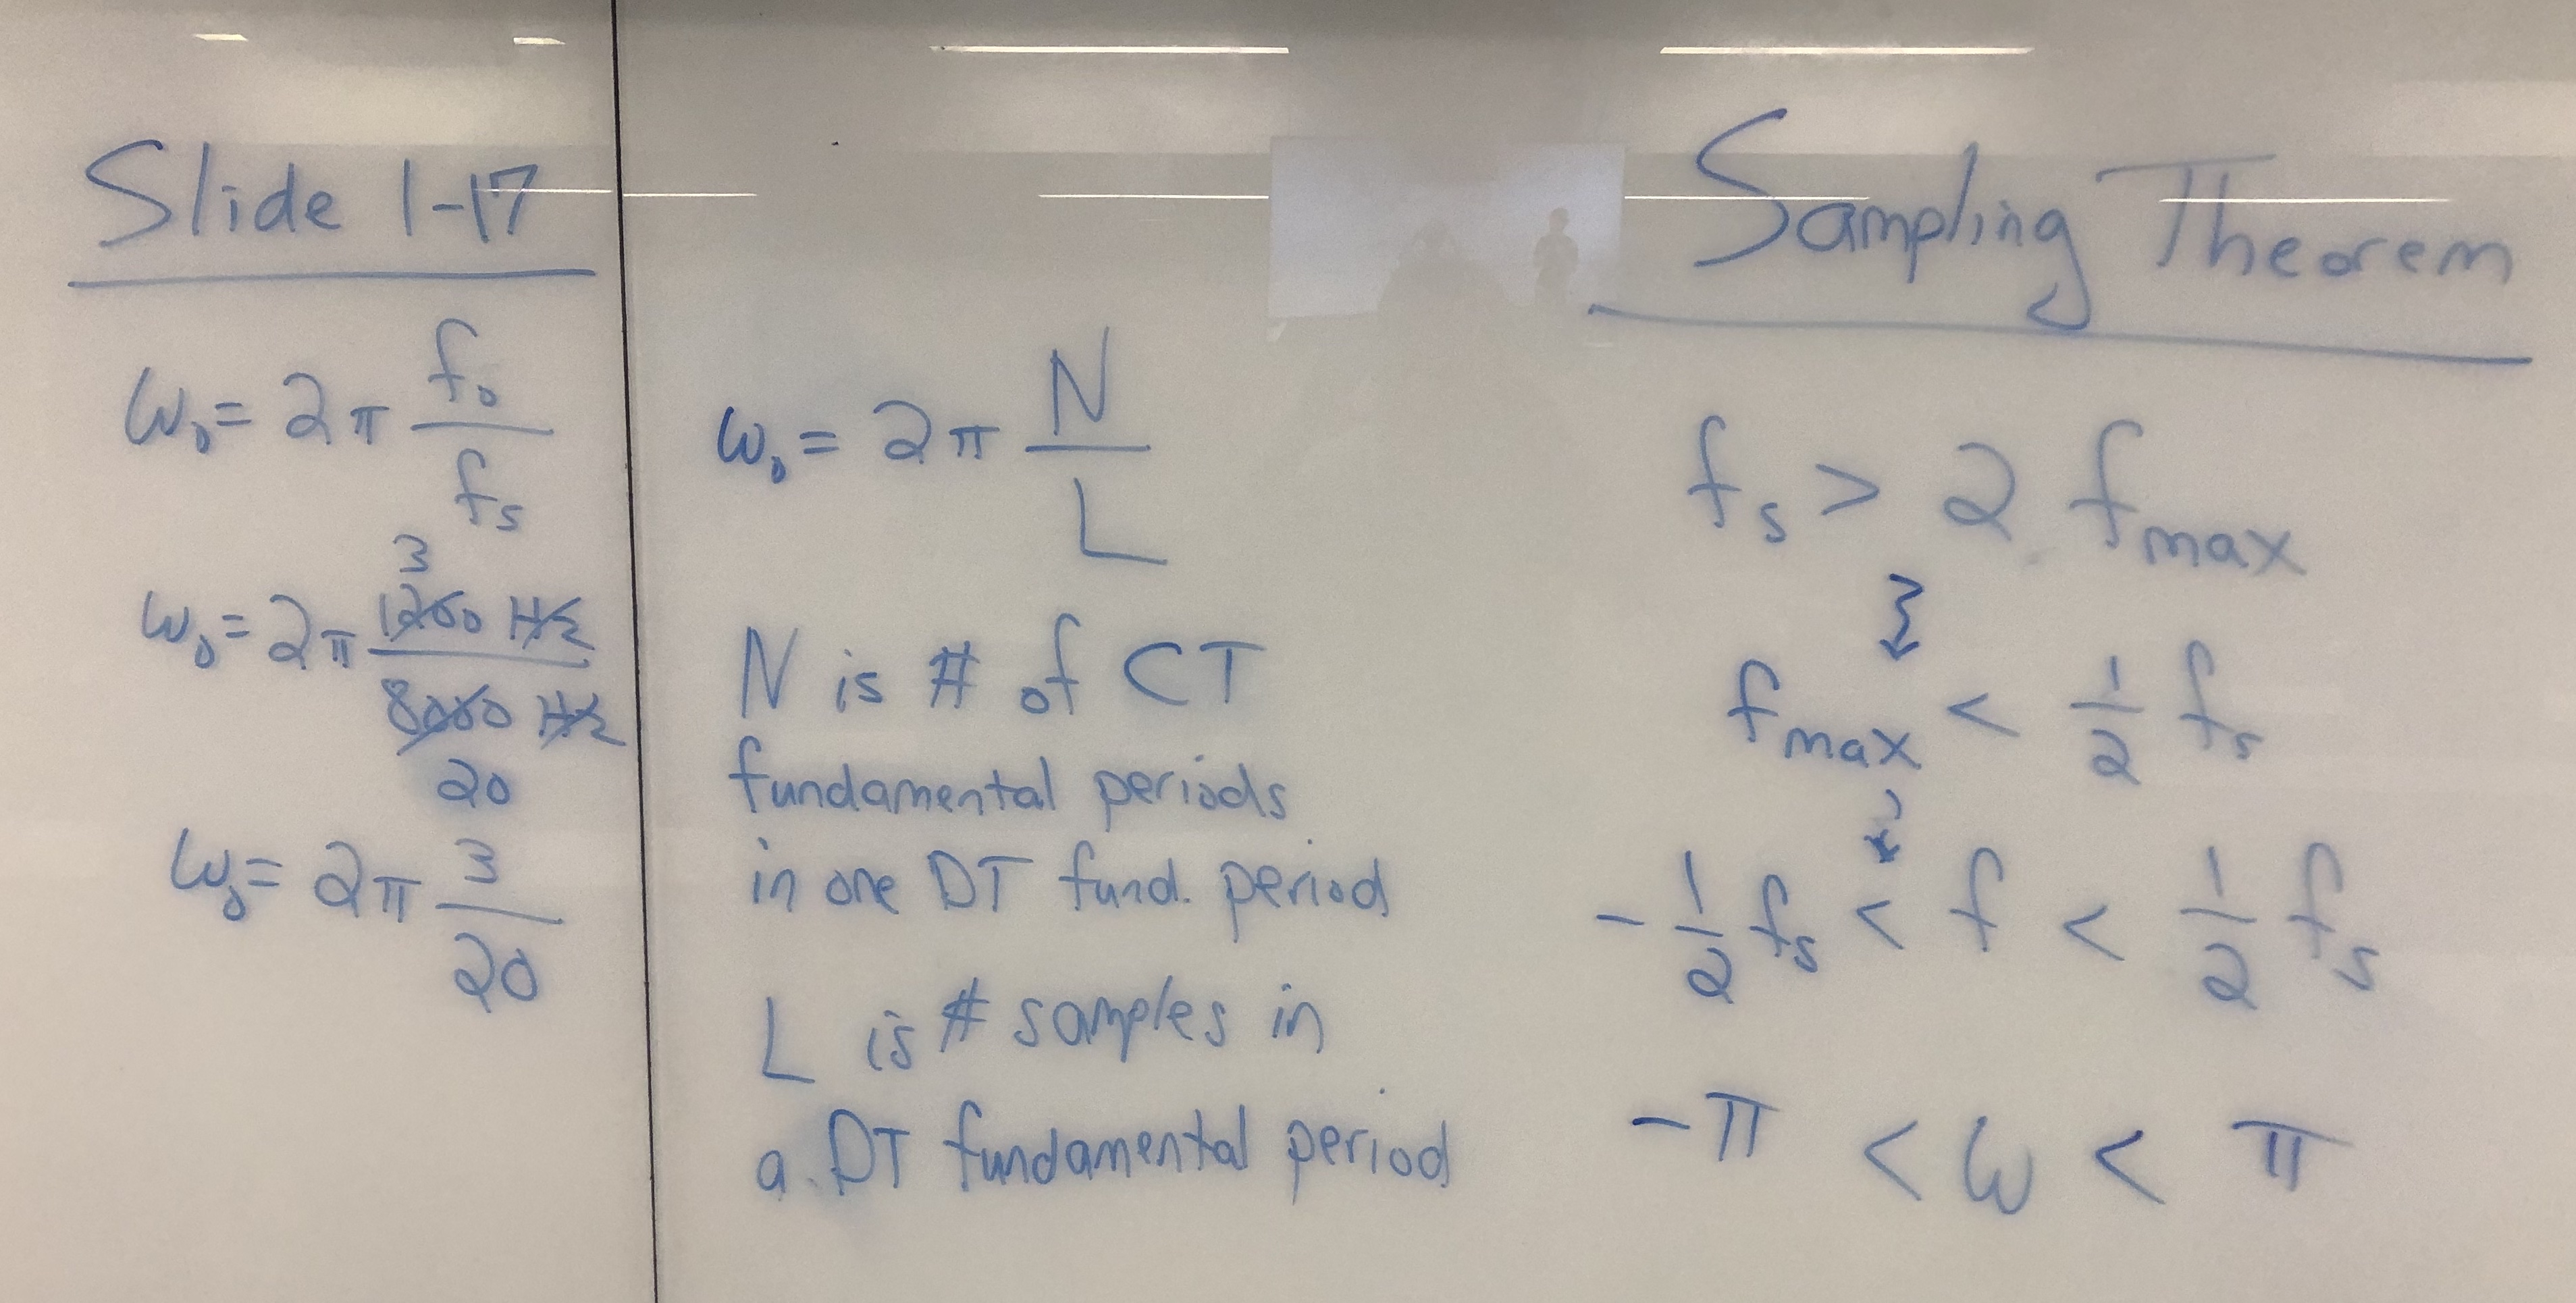 Slide 1-17
ω₀ = 2π f₀/fₛ
ω₀ = 2π 1200 Hz/8000 Hz
3
20
ω₀ = 2π 3/20
ω₀ = 2π N/L
N is # of CT
fundamental periods
in one DT fund. period
L is # samples in
a DT fundamental period
Sampling Theorem
fₛ > 2 f_max
f_max < 1/2 fₛ
-1/2 fₛ < f < 1/2 fₛ
-π < ω < π